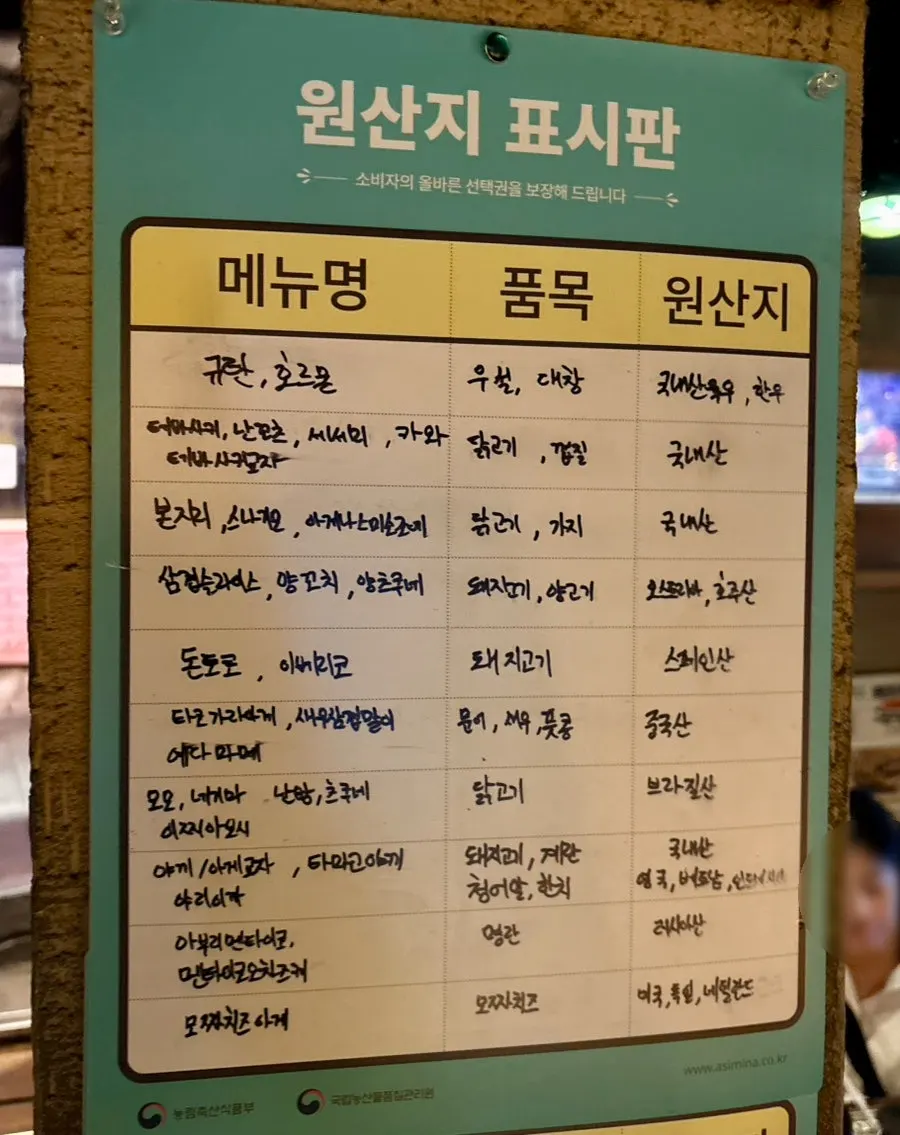 원산지 표시판
소비자의 올바른 선택권을 보장해 드립니다
메뉴명 품목 원산지
규탄, 호르몬 우설, 대창 국내산육우, 한우
테바사키, 난꼬츠, 세세리, 카와 닭고기, 껍질 국내산
테바사키교자
본지리, 스나기모, 아게나스미소즈케 닭고기, 가지 국내산
삼겹슬라이스, 양꼬치, 양츠쿠네 돼지고기, 양고기 오스트리아, 호주산
돈토로, 이베리코 돼지고기 스페인산
타코가라아게, 새우삼겹말이 문어, 새우, 풋콩 중국산
에다마메
모모, 네기마 난방, 츠쿠네 닭고기 브라질산
이찌야보시
야끼/아게교자, 타마고야끼 돼지고기, 계란 국내산
야리이까 청어알, 한치 영국, 베트남,
아부리멘타이코, 명란 러시아산
멘타이코오치즈케
모짜치즈아게 모짜치즈 미국, 독일, 네덜란드
www.asimina.co.kr
농림축산식품부 국립농산물품질관리원